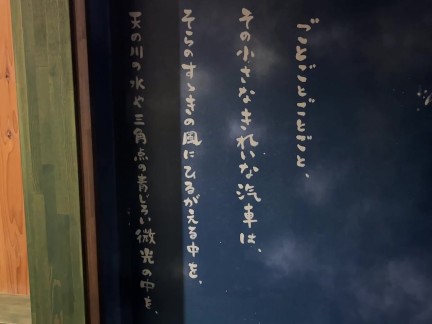 ごとごとごとごと、
その小さなきれいな汽車は、
そらのすゝきの風にひるがえる中を、
天の川の水や三角点の青じろい微光の中を、